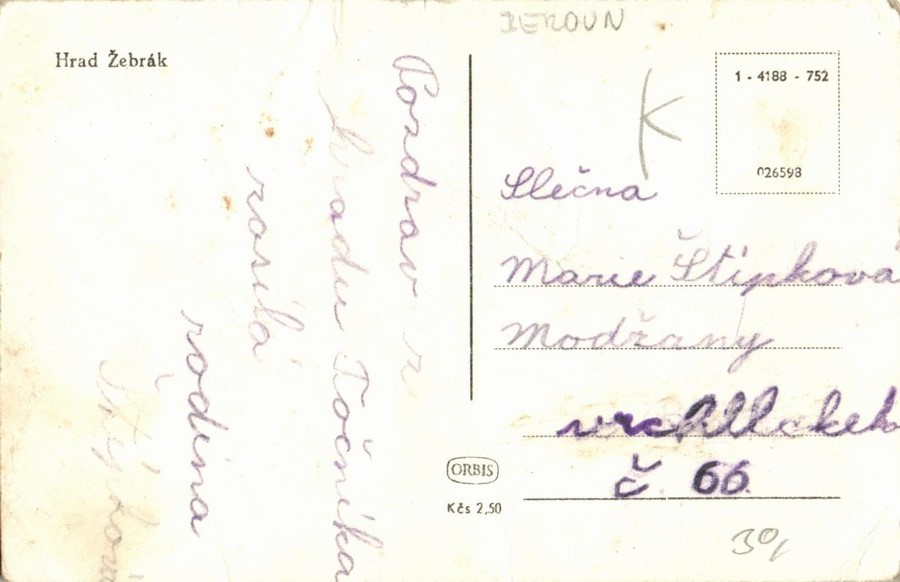 Hrad Žebrák
Pozdrav z
hradu Točníka
rosilá
rodina
BEROUN
K
1 - 4188 - 752
026598
Slečna
Marie Štípková
Modžany
vrchllckeh
č. 66
ORBIS
Kčs 2,50
30,